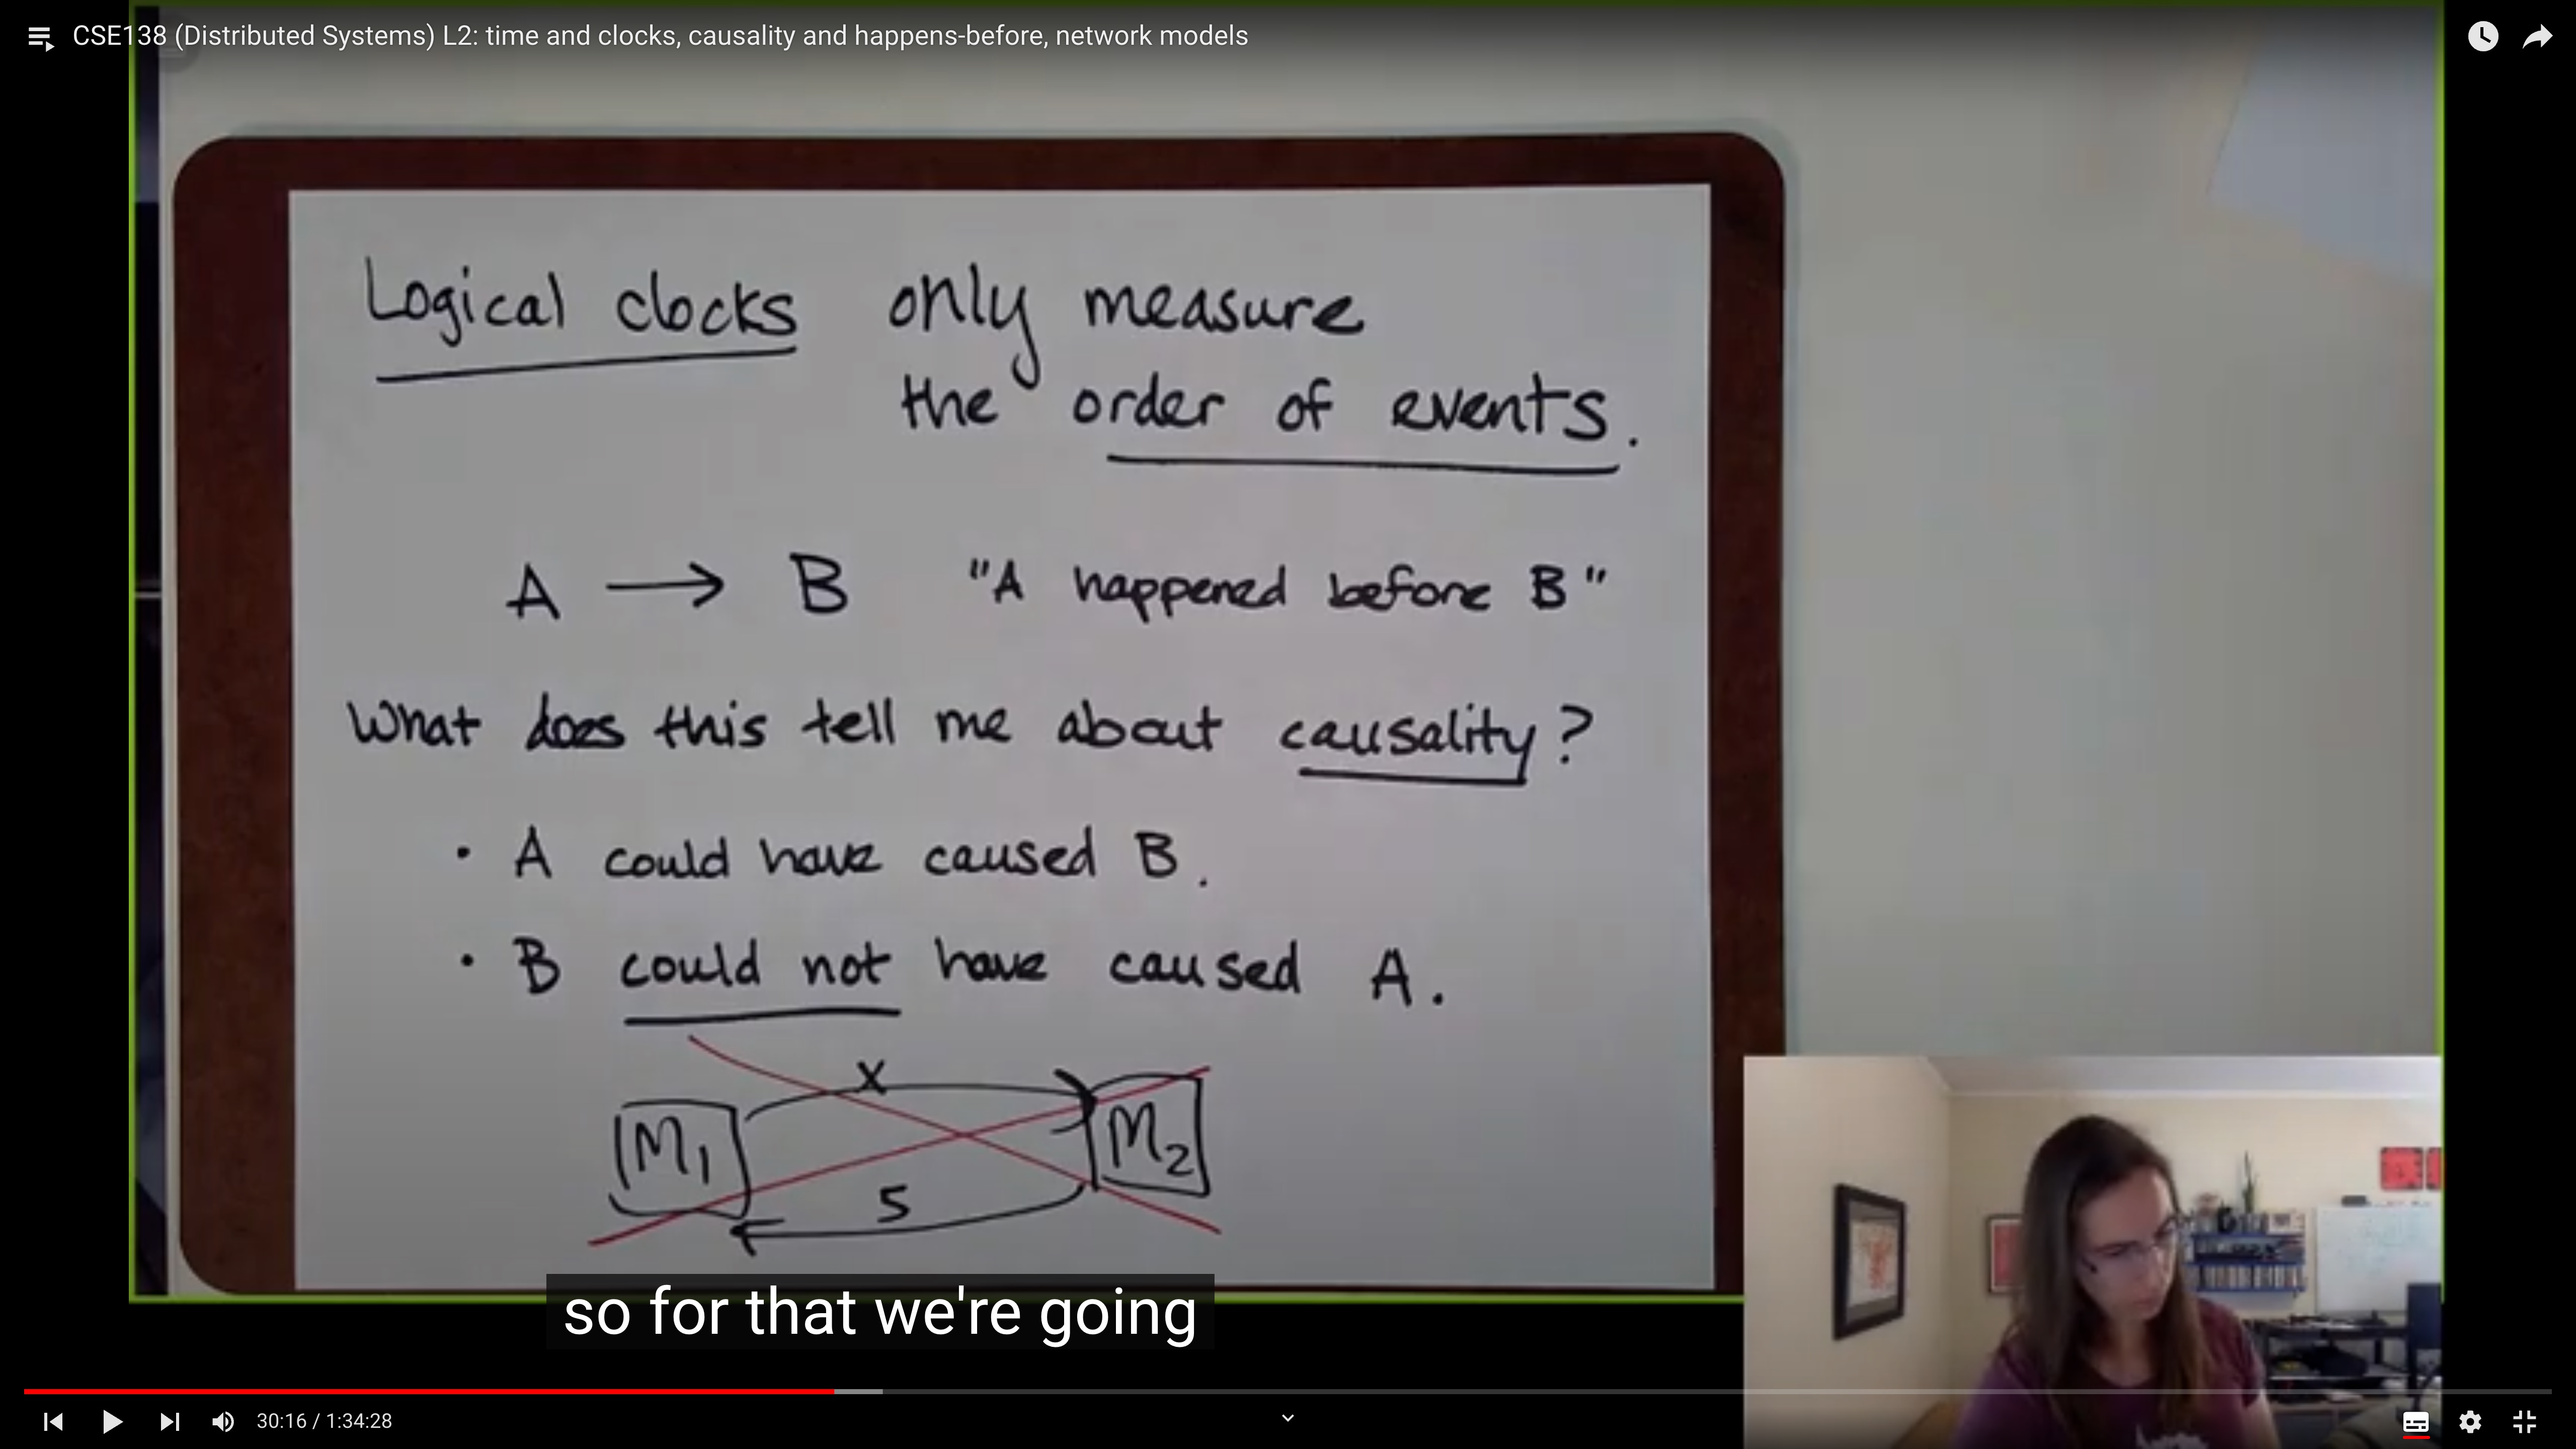 CSE138 (Distributed Systems) L2: time and clocks, causality and happens-before, network models
Logical clocks only measure
the order of events.
A → B "A happened before B"
What does this tell me about causality?
• A could have caused B.
• B could not have caused A.
x
M1 M2
5
so for that we're going
30:16 / 1:34:28